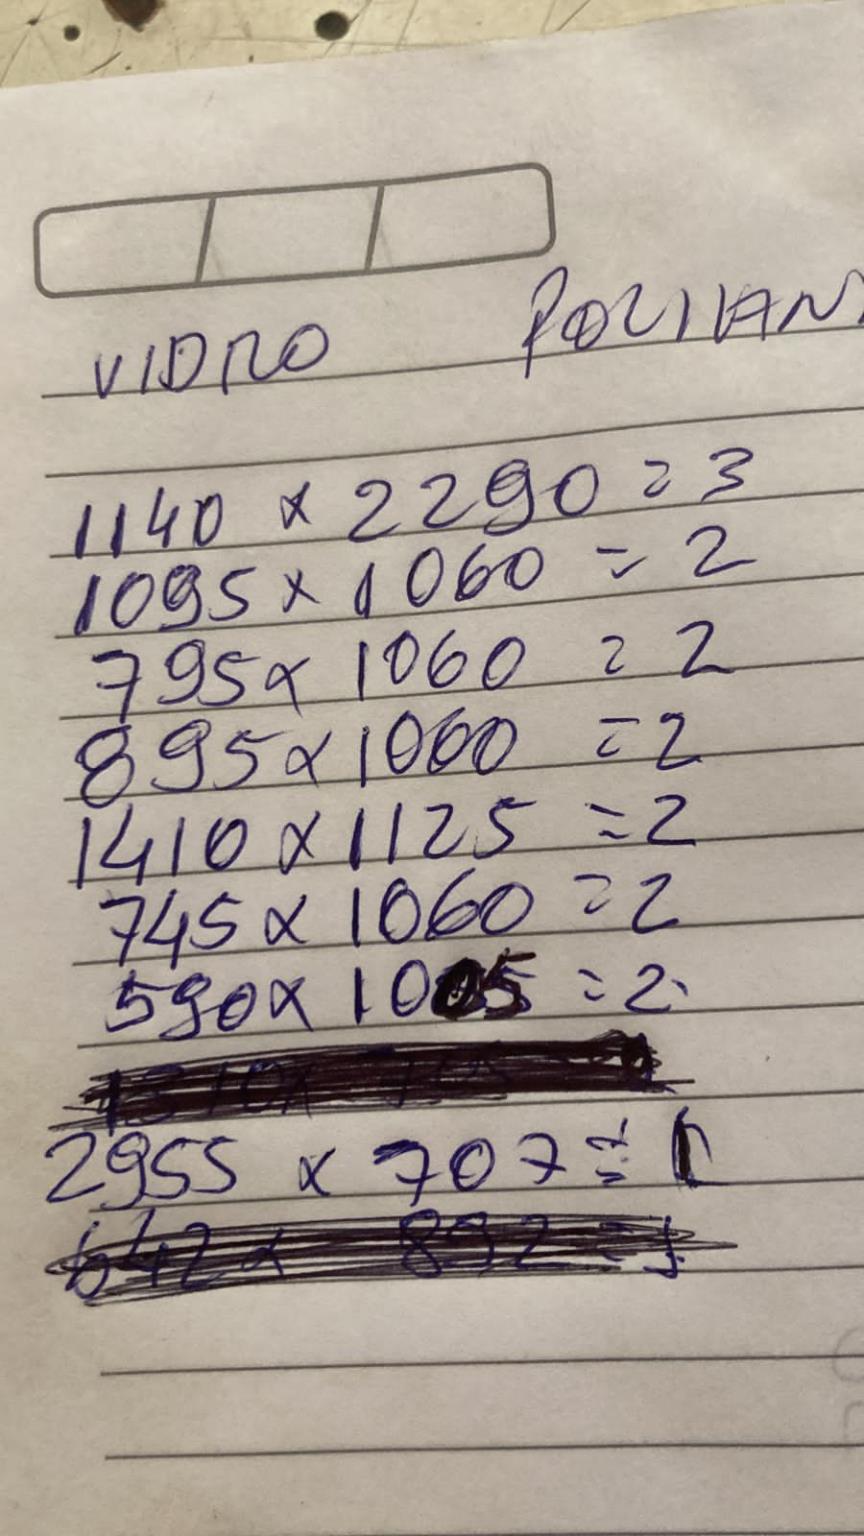 VIDRO POLIVAN
1140 x 2290 = 3
1095 x 1060 = 2
795 x 1060 = 2
895 x 1060 = 2
1410 x 1125 = 2
745 x 1060 = 2
590 x 1005 = 2
2955 x 707 = 1
642 x 892 = 1